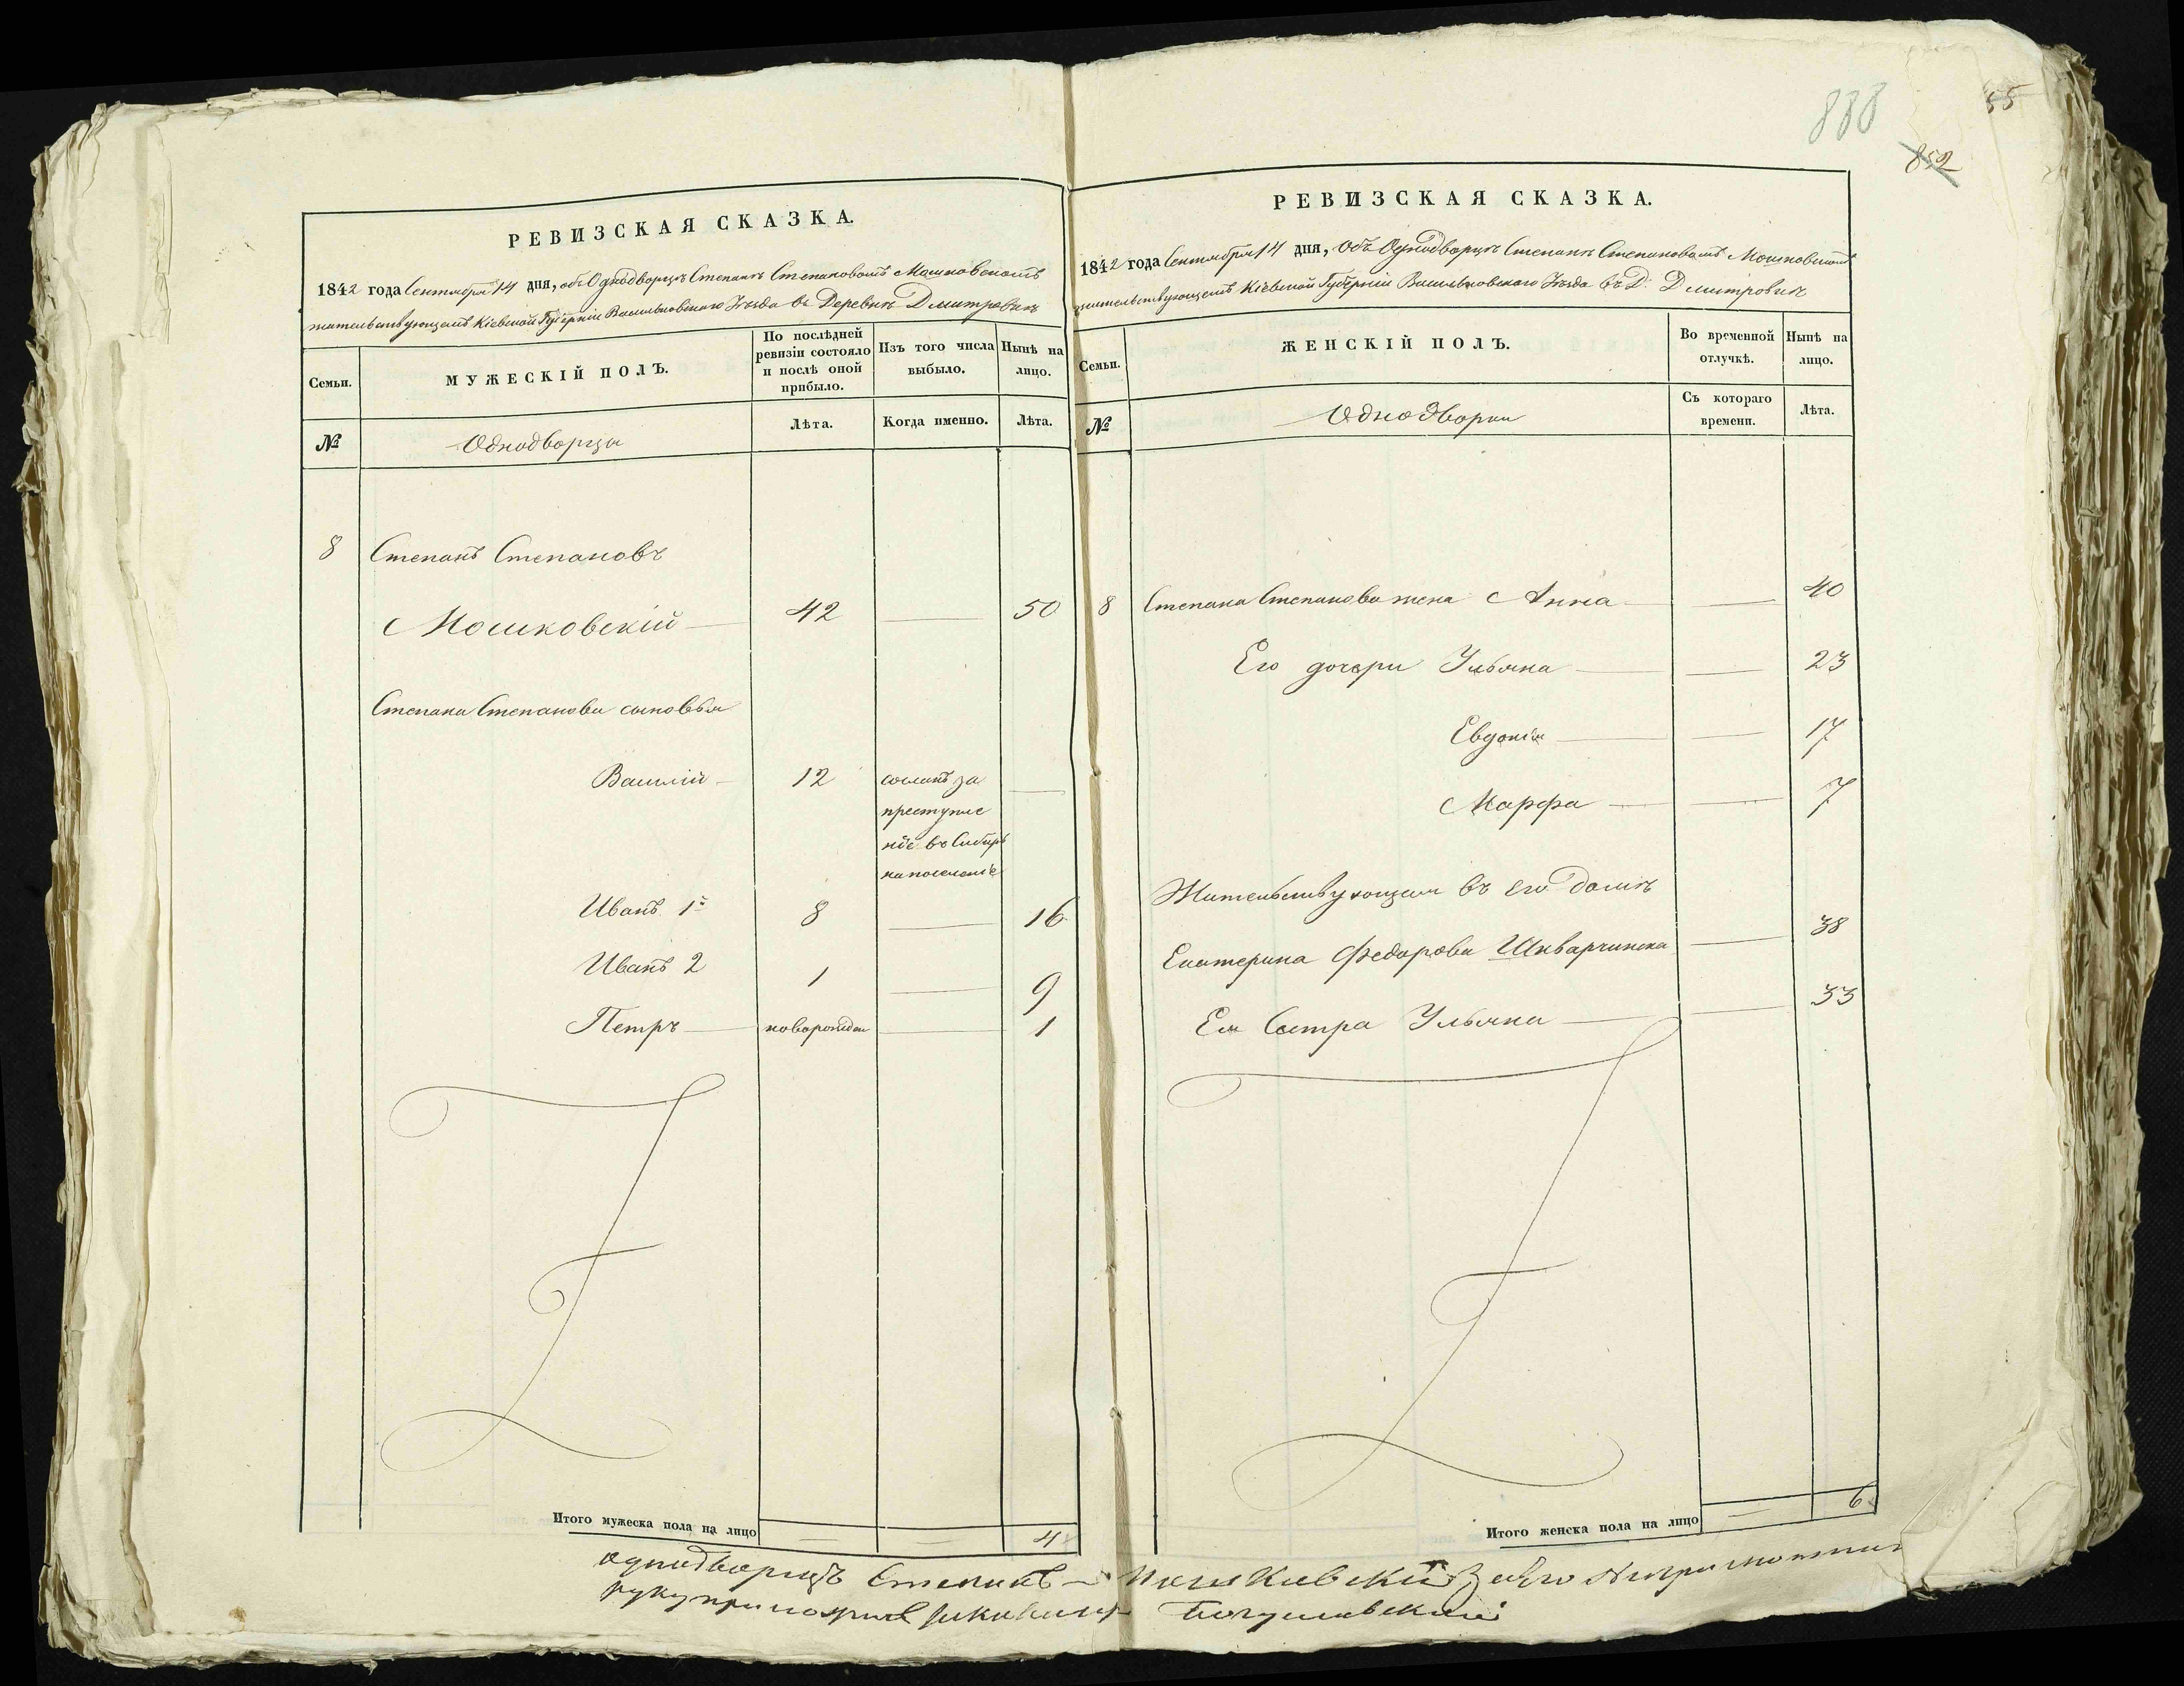 888
55
852
РЕВИЗСКАЯ СКАЗКА.
1842 года Сентября 14 дня, объ Однодворцѣ Степанѣ Степановомъ Мошковскомъ
жительствующемъ Кіевской Губерніи Васильковскаго Уѣзда въ Деревнѣ Дмитровкѣ
Семьи.
МУЖЕСКІЙ ПОЛЪ.
По послѣдней ревизіи состояло и послѣ оной прибыло.
Изъ того числа выбыло.
Нынѣ на лицо.
№
Однодворца
Лѣта.
Когда именно.
Лѣта.
8 Степанъ Степановъ
Мошковскій 42 — 50
Степана Степанова сыновья
Василій 12 сосланъ за —
преступле
ніе въ Сибирь
на поселеніе
Иванъ 1й 8 — 16
Иванъ 2 1 — 9
Петръ новорожден — 1
Итого мужеска пола на лицо — — 4
РЕВИЗСКАЯ СКАЗКА.
1842 года Сентября 14 дня, объ Однодворцѣ Степанѣ Степановомъ Мошковскомъ
жительствующемъ Кіевской Губерніи Васильковскаго Уѣзда въ Д. Дмитровкѣ
Семьи.
ЖЕНСКІЙ ПОЛЪ.
Во временной отлучкѣ.
Нынѣ на лицо.
№
Однодворки
Съ котораго времени.
Лѣта.
8 Степана Степанова жена Анна — 40
Его дочери Ульяна — 23
Евдокія — 17
Марфа — 7
Жительствующия въ его домѣ
Екатерина Федорова Шкварчинска — 38
Ея Сестра Ульяна — 33
Итого женска пола на лицо — 6
однодворецъ Степанъ Мошковскій
руку приложилъ Богуславскій